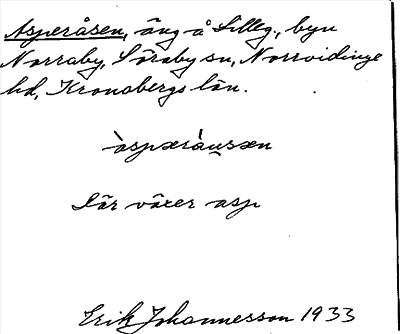 Asperåsen, äng å Lilleg., byn
Norraby, Söraby sn, Norrvidinge
hd, Kronobergs län.
àspæràusæn
Där växer asp
Erik Johannesson 1933